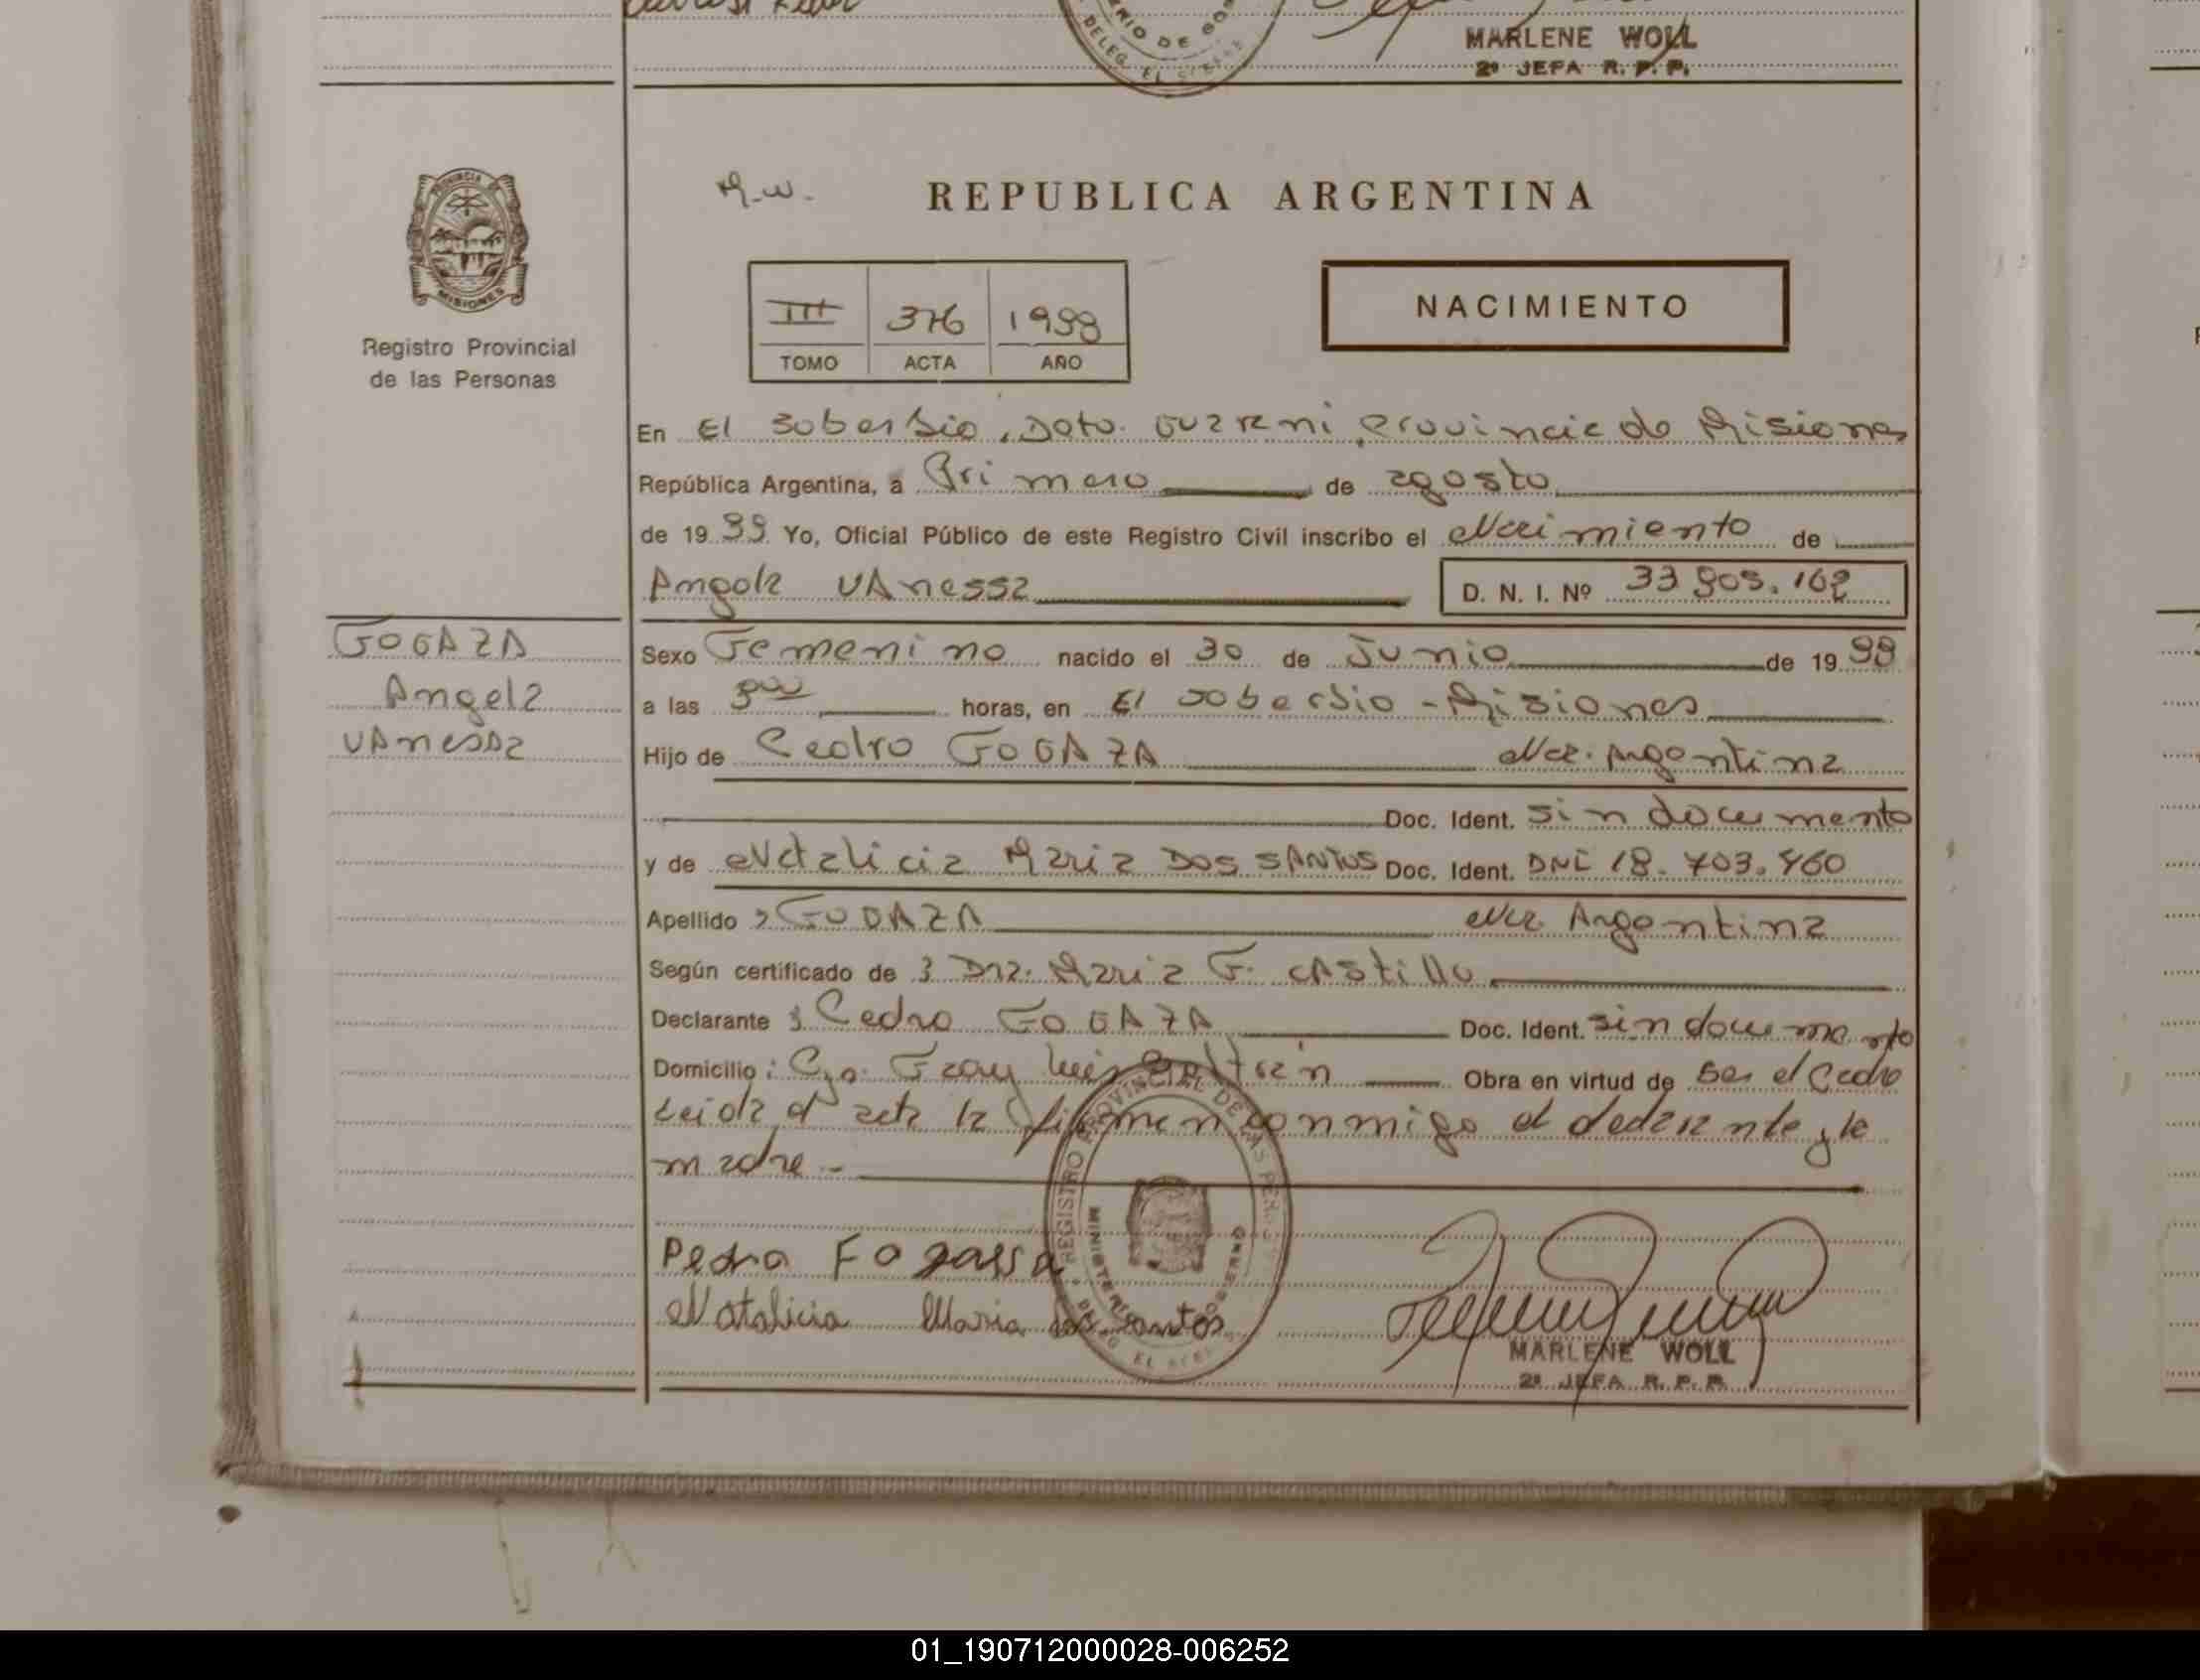 MARLENE WOLL
2ª JEFA R. P. P.
PROVINCIA DE
MISIONES
Registro Provincial
de las Personas
M.W.
REPUBLICA ARGENTINA
III 376 1998
TOMO ACTA AÑO
NACIMIENTO
En El Soberbio, Dpto. Guarani Provincia de Misiones
República Argentina, a Primero de agosto
de 1999 Yo, Oficial Público de este Registro Civil inscribo el Nacimiento de
Angela VAnessa D. N. I. Nº
FOGAZA
Angela
VAnessa
Sexo Femenino nacido el 30 de Junio de 19
a las horas, en El Soberbio - Misiones
Hijo de Pedro FOGAZA Nac. Argentina
Doc. Ident. sin documento
y de Natalicia Maria DOS SANTOS Doc. Ident. DNI 18.703.460
Apellido : FOGAZA Nac. Argentina
Según certificado de : Dra. Maria F. CAstillo
Declarante : Pedro FOGAZA Doc. Ident. sin documento
Domicilio : Fray Luis Beltran Obra en virtud de Ser el Padre
Leida el acta la firman conmigo el declarante y la
madre -
Pedro Fogassa
Natalicia Maria dos santos
REGISTRO PROVINCIAL DE LAS PERS
MINISTERIO GOBIERNO
MARLENE WOLL
2ª JEFA R. P. P.
01_190712000028-006252